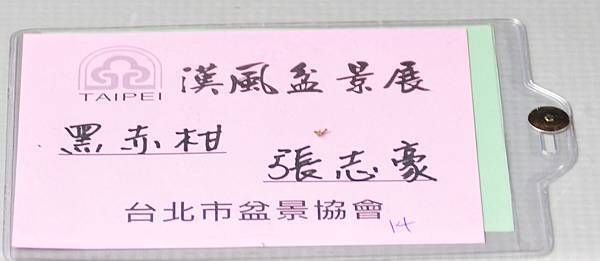 漢風盆景展
TAIPEI
黑赤柑
張志豪
台北市盆景協會
14